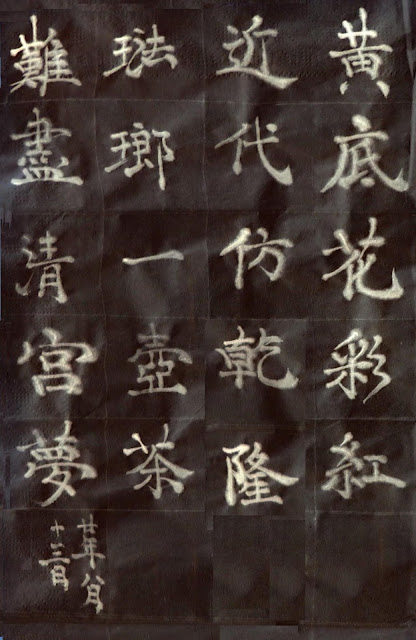 黃底花彩紅
近代仿乾隆
琺瑯一壺茶
難盡清宮夢
廿年八月
十三日